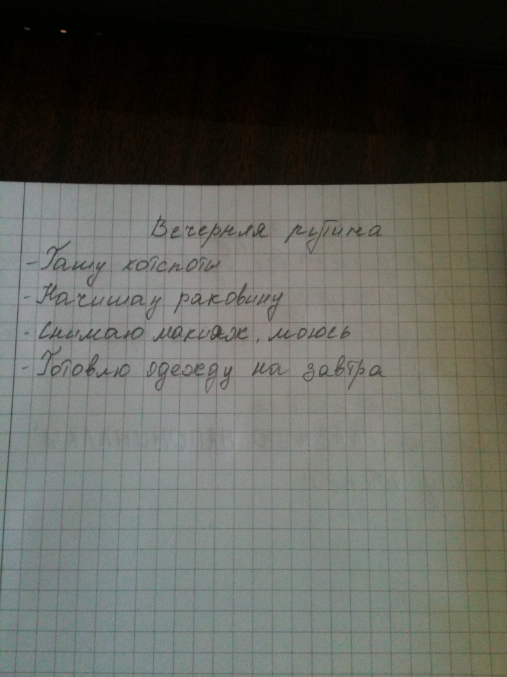 Вечерняя рутина
- Гашу хотспоты
- Начищау раковину
- Снимаю макияж, моюсь
- Готовлю одежду на завтра